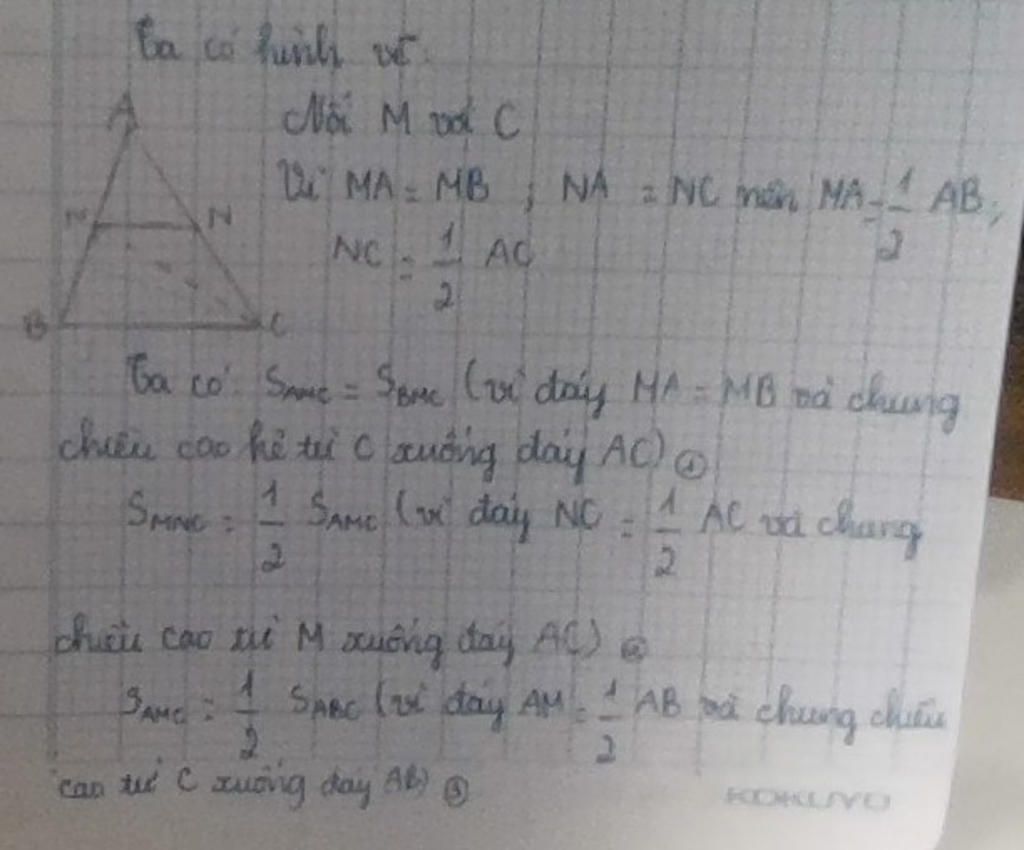 Ta có hình vẽ:
A
Nối M với C
Vì MA = MB ; NA = NC nên MA = 1/2 AB;
M N
NC = 1/2 AC
B C
Ta có: SAMC = SBMC (vì đáy MA = MB và chung
chiều cao kẻ từ C xuống đáy AC) ①
SMNC = 1/2 SAMC (vì đáy NC = 1/2 AC và chung
chiều cao từ M xuống đáy AC) ②
SAMC = 1/2 SABC (vì đáy AM = 1/2 AB và chung chiều
cao từ C xuống đáy AB) ③
KOKUYO